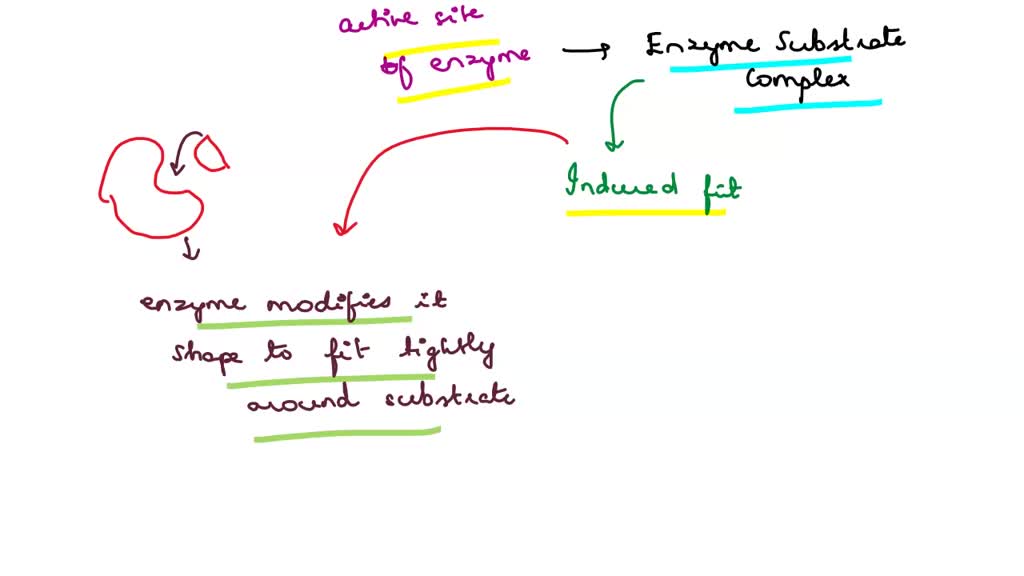 active site
of enzyme → Enzyme Substrate
Complex
Induced fit
enzyme modifies it
shape to fit tightly
around substrate